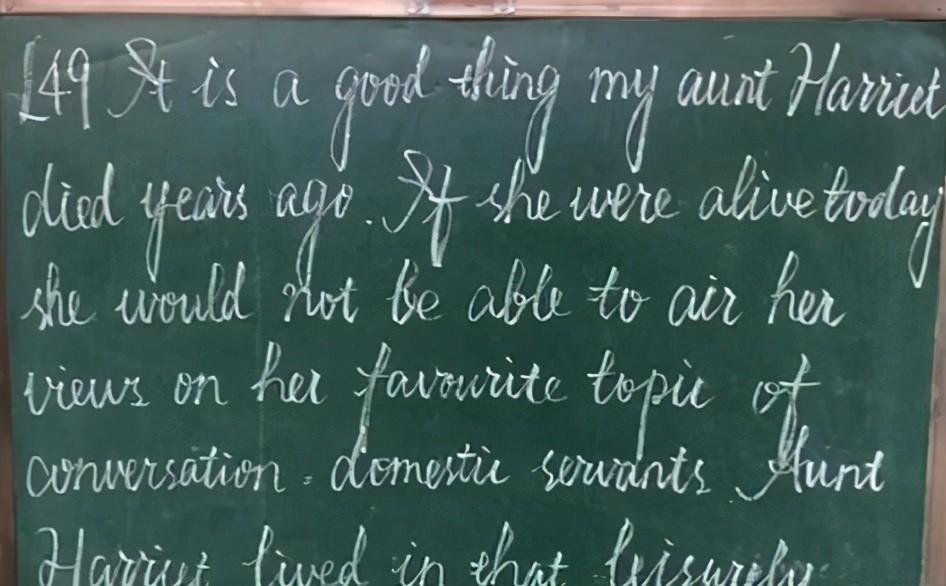 L49 It is a good thing my aunt Harriet
died years ago. If she were alive today
she would not be able to air her
views on her favourite topic of
conversation: domestic servants. Aunt
Harriet lived in that leisurely